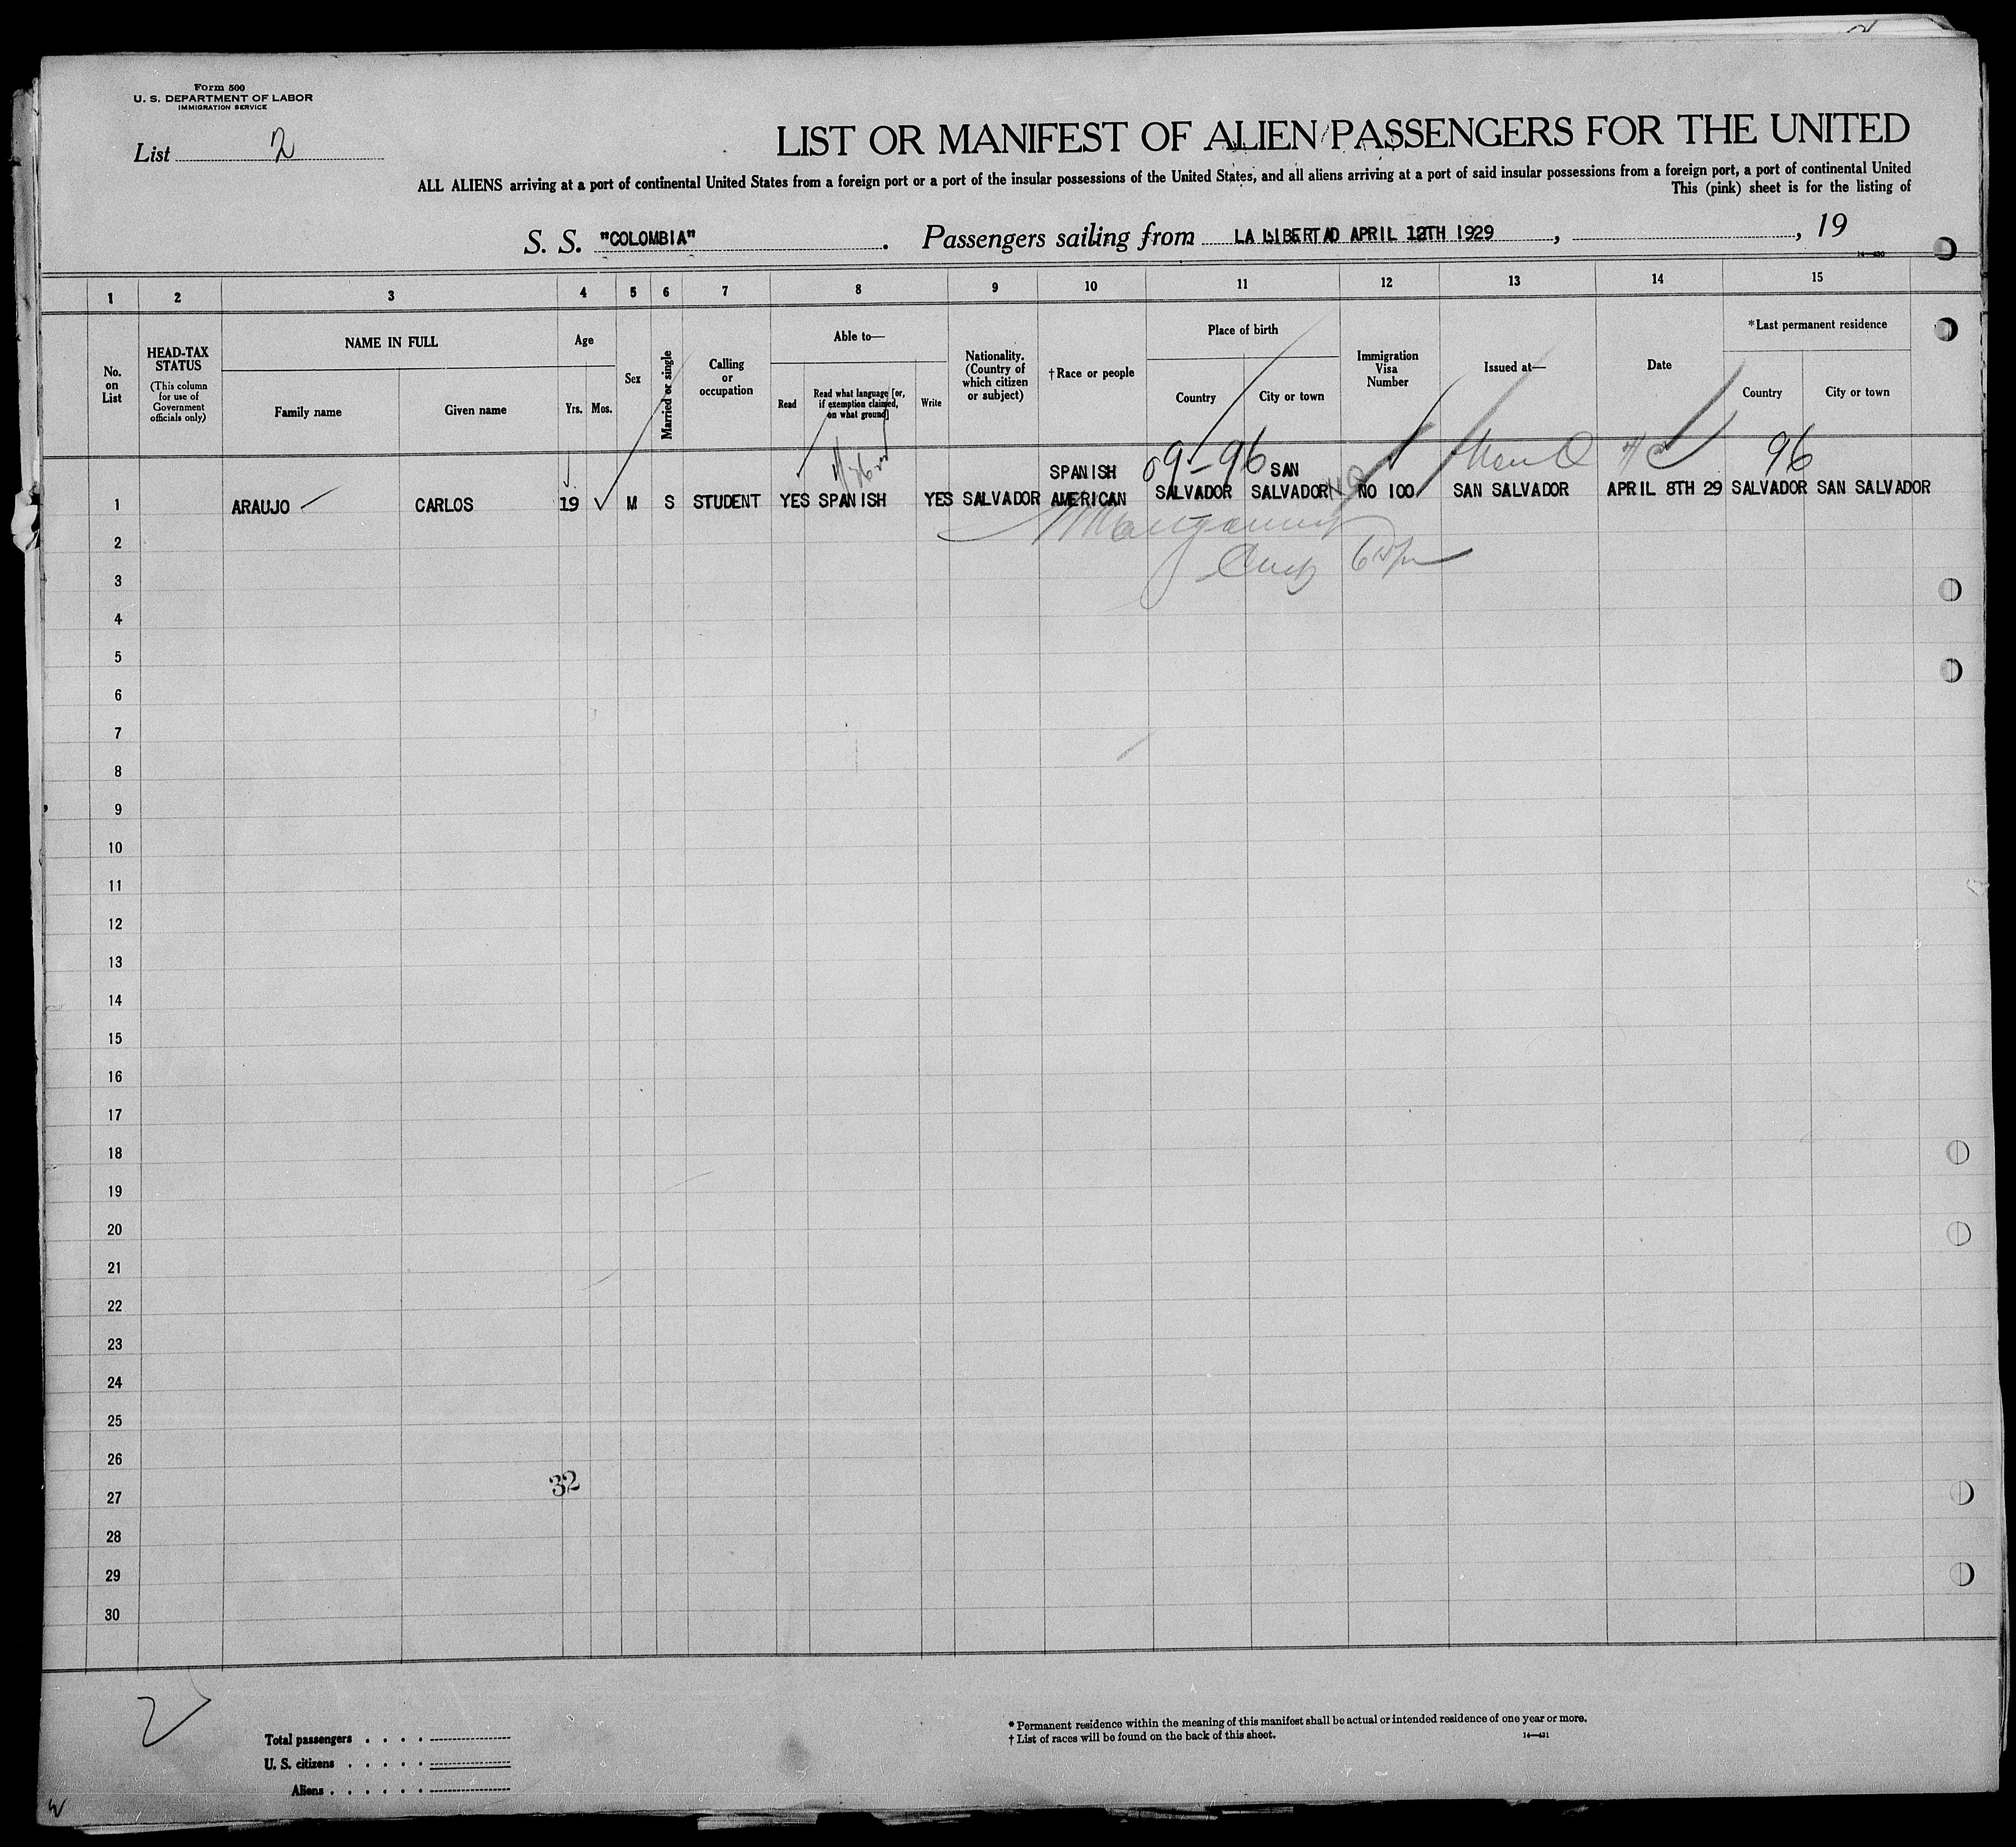 Form 500
U. S. DEPARTMENT OF LABOR
IMMIGRATION SERVICE
List 2
LIST OR MANIFEST OF ALIEN PASSENGERS FOR THE UNITED
ALL ALIENS arriving at a port of continental United States from a foreign port or a port of the insular possessions of the United States, and all aliens arriving at a port of said insular possessions from a foreign port, a port of continental United
This (pink) sheet is for the listing of
S. S. "COLOMBIA". Passengers sailing from LA LIBERTAD APRIL 12TH 1929, , 19
14—430
1 2 3 4 5 6 7 8 9 10 11 12 13 14 15
No. on List
HEAD-TAX STATUS (This column for use of Government officials only)
NAME IN FULL
Family name
Given name
Age
Yrs. Mos.
Sex
Married or single
Calling or occupation
Able to—
Read
Read what language [or, if exemption claimed, on what ground]
Write
Nationality. (Country of which citizen or subject)
†Race or people
Place of birth
Country
City or town
Immigration Visa Number
Issued at—
Date
*Last permanent residence
Country
City or town
09-96 96
1 ARAUJO CARLOS 19 M S STUDENT YES SPANISH YES SALVADOR SPANISH AMERICAN SALVADOR SAN SALVADOR NO 100 SAN SALVADOR APRIL 8TH 29 SALVADOR SAN SALVADOR
2
3
4
5
6
7
8
9
10
11
12
13
14
15
16
17
18
19
20
21
22
23
24
25
26
32
27
28
29
30
2
Total passengers . . . .
U. S. citizens . . . . .
Aliens . . . . . .
* Permanent residence within the meaning of this manifest shall be actual or intended residence of one year or more.
† List of races will be found on the back of this sheet.
14—431